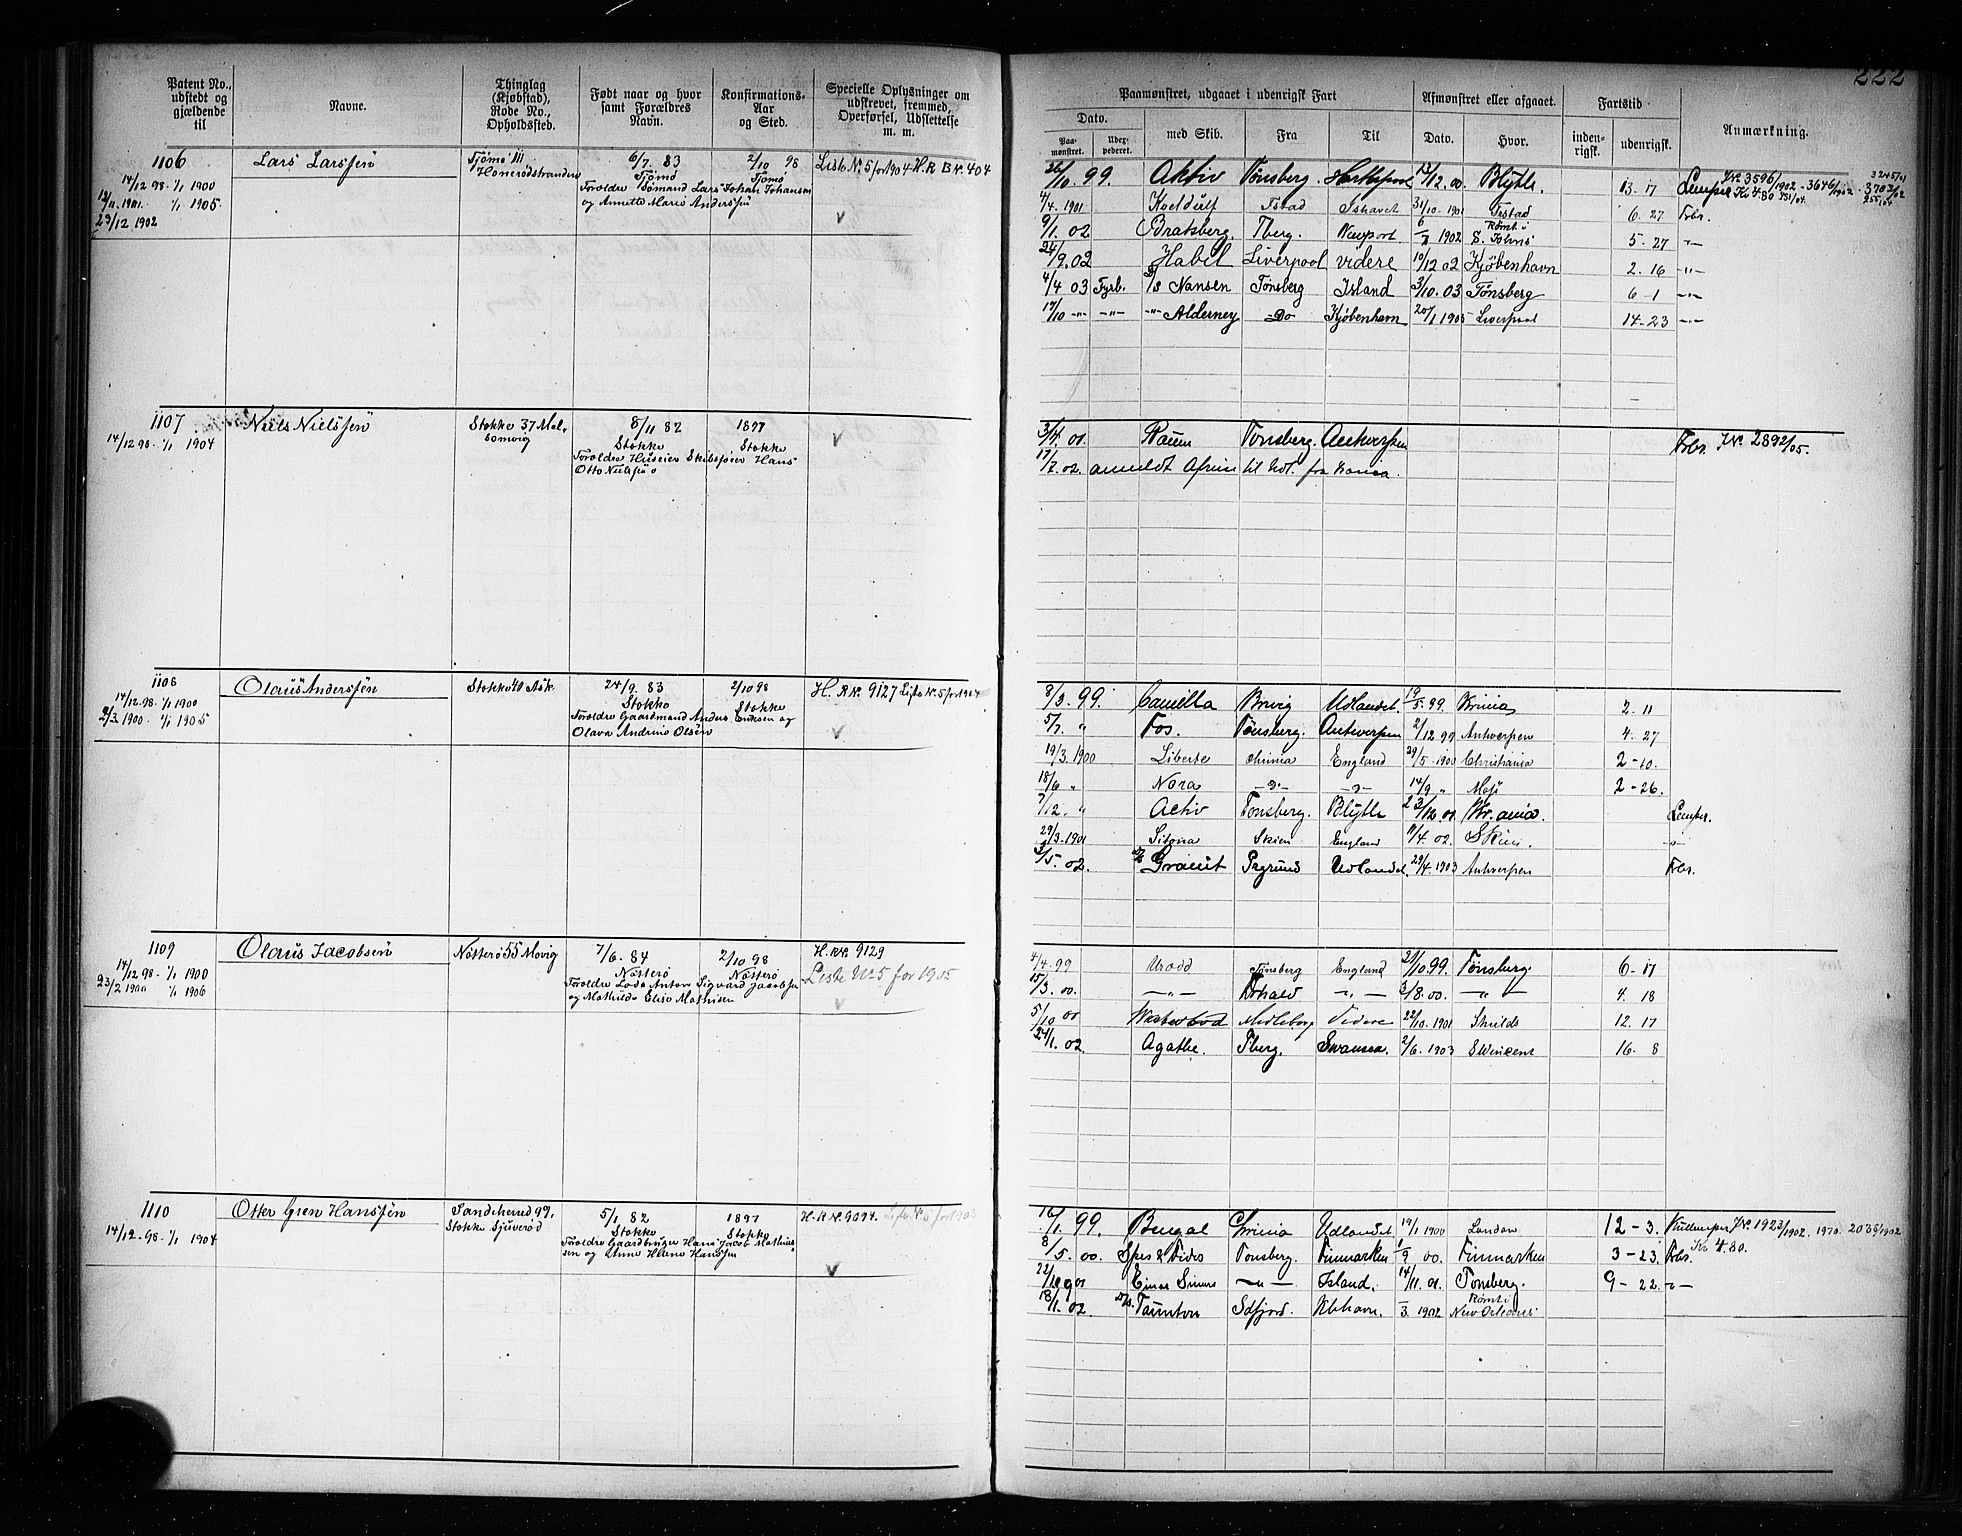 222
Patent No., udstedt og gjældende til
Navne.
Thinglag (Kjøbstad), Rode No., Opholdssted.
Født naar og hvor samt Forældres Navn.
Konfirmations-Aar og Sted.
Specielle Oplysninger om udskrevet, fremmed, Overførsel, Udslettelse m. m.
Paamønstret, udgaaet i udenrigsk Fart
Afmønstret eller afgaaet.
Fartstid
Anmærkning.
Dato.
Paa-mønstret.
Udex-pederet.
med Skib.
Fra
Til
Dato.
Hvor.
inden-rigsk.
udenrigsk.
1106
14/12 98 - 1/1 1900
1/1 1905.
23/12 1902
Lars Larssen
Tjømø 111
6/7. 83
Tjømø
Forældre Sømand Lars Johan Johansen
og Annette Marie Andersen
2/10 98
Tjømø
Liste No. 5 for 1904 H. R B No. 404
26/10. 99. Aktiv Tønsberg Hartlepool /12. 00. Blyth. 13. 17
/4. 1901 Ishavet 31/10. 1901 6. 27 Fbr.
9/1. 02 Bratsberg. Tberg. Newport. 1902 Rømt i S. Johns 5 - 27 -"-
24/9. 02 Habil Liverpool videre 10/12 02 Kjøbenhavn 2. 16 -"-
4/4 03 Fyrb. S/S Nansen Tønsberg Island 3/10. 03 Tønsberg 6 - 1 -"-
17/10 -"- -"- -"- Alderney - Do - Kjøbenhavn 20/1 1905 Liverpool 14 - 23 -"-
1107
14/12 98 - 1/1 1904
Niels Nielssen
Stokke 37 Mel-
somvig
8/11 82
Stokke
Forældre Huseier Skibsfører Hans
Otto Nielssen
1897
Stokke
3/4. 01. Raum Tønsberg. Antwerpen Fbr. JNo. 2892/05.
17/7. 02. anmeldt
1108
14/12. 98 - 1/1 1900
2/3. 1900 - 1/1 1905
Olaus Anderssen
Stokke 40 Ask.
24/9. 83
Stokke
Forældre Gaardmand Anders Eriksen og
Olava Andrine Olsen
2/10 98
Stokke
H. R No. 9127 Liste No. 5 for 1904
8/3. 99. Camilla Brevig Udlandet 19/5. 99. 2. 11
5/7. " Fos. Tønsberg. Antwerpen 2/12. 99 Antwerpen 4. 27
19/3. 1900 Liberte Chrinia England 29/5. 1900 Christiania 2 - 10.
18/6 " Nora -"- -"- 14/9 " Moss 2 - 26.
7/12. " Activ Tønsberg. Blyth 23/12. 01. Kr.ania. Lemper.
29/3. 1901 Skien England 11/4. 02. Skien. -"-
3/5. 02. S/S Granit Pgrund Udlandet. 29/4. 1903 Antverpen Fbr.
1109
14/12 98 - 1/1 1900
23/2 1900 1/1 1906
Olaus Jacobsen
Nøtterø 55 Movig
7/6. 84
Nøtterø
Forældre Lods Anton Sigvard Jacobsen
og Mathilde Elise Mathisen
2/10 98
Nøtterø
H. R No. 9129
Liste No 5 for 1905
4/4. 99 Uradd Tønsberg England 21/10. 99. Tønsberg. 6 - 17
15/3. 00. -"- -"- 3/8. 00. -"- 4. 18
5/10 00 Videre 22/10. 1901 Shields 12. 17
24/1. 02. Agathe. Tberg. Swansea. 2/6. 1903 16. 8
1110
14/12 - 98 - 1/1 1904
Otter Gren Hanssen
Sandeherred 99.
Stokke Sjuerød
5/1. 82
Stokke
Forældre Gaardbruger Hans Jacob Mathias-
sen og Anne Helene Hanssen
1897
Stokke
H. R No. 9094. Liste No. 5 for 1903
16/1. 99. Bengal Chrinia Udlandet 19/1 1900 London 12 - 3. JNo. 1923/1902. 1970. 2036/1902
8/5. 00. Spes & Fides Tønsberg. Finmarken 1/9 00. Finmarken 3 - 23. Fbr. Kr 4.80.
Einar Simers -"- Island. 14/11. 01. Tønsberg. 9 - 22. -"-
18/1. 02. S/S. Taunton Sdfjord. Kbhavn. /3. 1902 Rømt i New Orleans